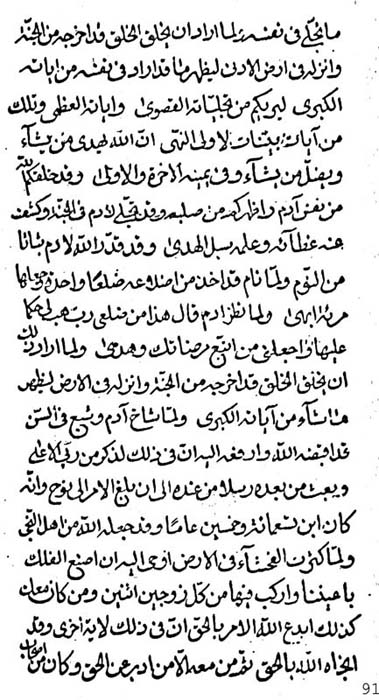 ما تجلّى فى نفسه ولمّا اراد ان يخلق الخلق قد اخرجه من الجنّة
وانزله فى ارض الادنى ليظهر ما قد اراد فى نفسه من اياته
الكبرى ليريكم من تجلّياته القصوى واياته العظمى وتلك
من آيات بيّنات لاولى النّهى انّ اللّه يهدى من يشآء
ويضلّ من يشآء وفى يمينه الآخرة والاولى وقد خلقكم اللّه
من نفس آدم واظهركم من صلبه وقد تجلّى لآدم فى الجنّة وكشف
عنه غطآئه وعلّمه سبل الهدى وقد قدّر اللّه لآدم سباتا
من النّوم ولمّا نام قد اخذ من اضلاعه ضلعا واحدة وجعلها
مرءة ولمّا نظر آدم قال هذا من ضلعى ربّ هب لى حكما
عليها واجعلنى من اتّبع مرضاتك وهدى ولمّا اراد ربّك
ان يخلق الخلق قد اخرجه من الجنّة وانزله فى الارض ليظهر
ما شآء من آياته الكبرى ولمّا شاخ آدم وشبع فى السّن
قد اقبضه اللّه وارفعه اليه انّ فى ذلك لذكر من ربّى الاعلى
وبعث من بعده رسلا من عنده الى ان بلغ الامر الى نوح وانّه
كان ابن تسعمائة وخمسين عاما وقد جعله اللّه من اهل التّقى
ولمّا كثرت الفحشآء فى الارض اوحى اليه ان اصنع الفلك
باعيننا واركب فيها من كلّ زوجين اثنين ومن كان معك
كذلك ابدع اللّه الامر بالحقّ انّ فى ذلك لآية اخرى وقد
انجاه اللّه بالحقّ ثمّ من معه الّا من ادبر عن الحقّ وكان من اصحاب
91